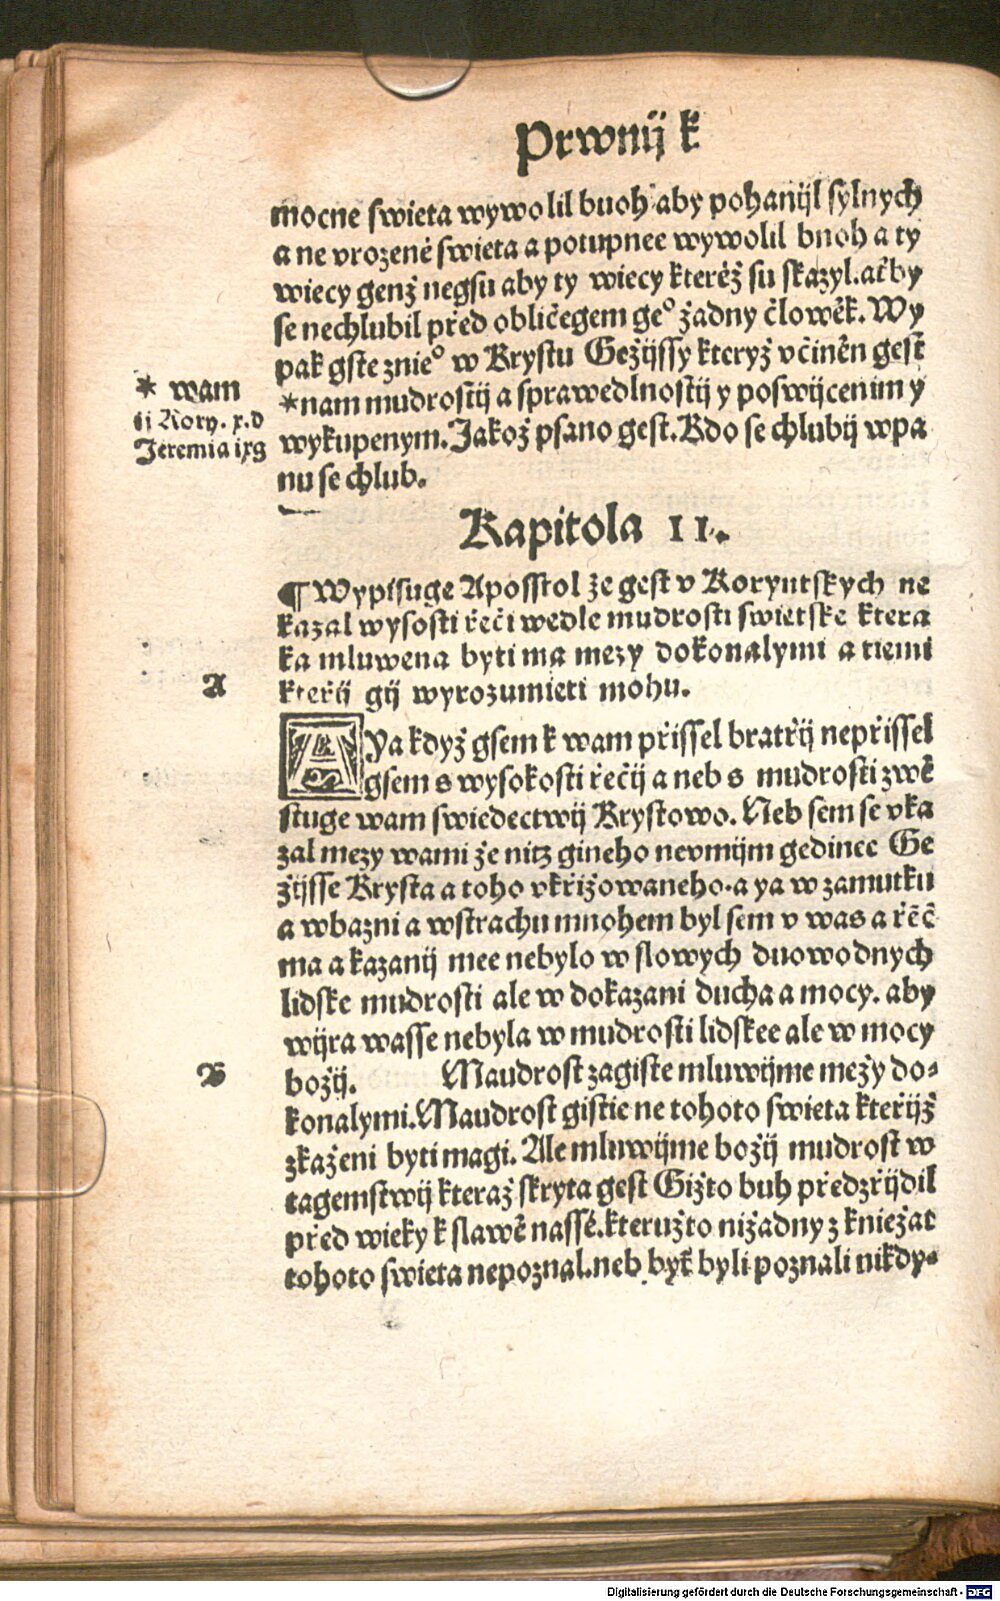 Prwnij k
mocne swieta wywolil buoh aby pohanijl sylnych
a ne vrozenė swieta a potupnee wywolil bnoh a ty
wiecy genž negsu aby ty wiecy kterėž su skazyl. at̆by
se nechlubil před obličegem geº žadny človĕk. Wy
pak gste znieº w Krystu Gežijssy kteryž včinĕn gest
* wam
*nam mudrostij a sprawedlnostij y poswijcenim y
ij Kory. x.d
wykupenym. Jakož psano gest. Kdo se chlubij w pa
Jeremia ixg
nu se chlub.
Kapitola II.
¶ Wypisuge Aposstol že gest v Koryntskych ne
kazal wysosti řeči wedle mudrosti swietske ktera
ka mluwena byti ma mezy dokonalymi a tiemi
A
kteřij gij wyrozumieti mohu.
A ya když gsem k wam přissel bratřij nepřissel
gsem s wysokosti řečij a neb s mudrosti zwĕ
stuge wam swiedectwij Krystowo. Neb sem se vka
zal mezy wami že nitz gineho nevmijm gedinee Ge
žijsse Krysta a toho vkřižowaneho. a ya w zamutku
a w bazni a w strachu mnohem byl sem v was a řĕč
ma a kazanij mee nebylo w slowych duowodnych
lidske mudrosti ale w dokazani ducha a mocy. aby
wijra wasse nebyla w mudrosti lidskee ale w mocy
B
božij. Maudrost zagiste mluwijme mežy do-
konalymi. Maudrost gistie ne tohoto swieta kteřijž
zkaženi byti magi. Ale mluwijme božij mudrost w
tagemstwij kteraž skryta gest Gižto buh předzřijdil
před wieky k slawĕ nassė. kteružto nižadny z kniežat
tohoto swieta nepoznal. neb byt̆ byli poznali nikdy-
Digitalisierung gefördert durch die Deutsche Forschungsgemeinschaft - DFG